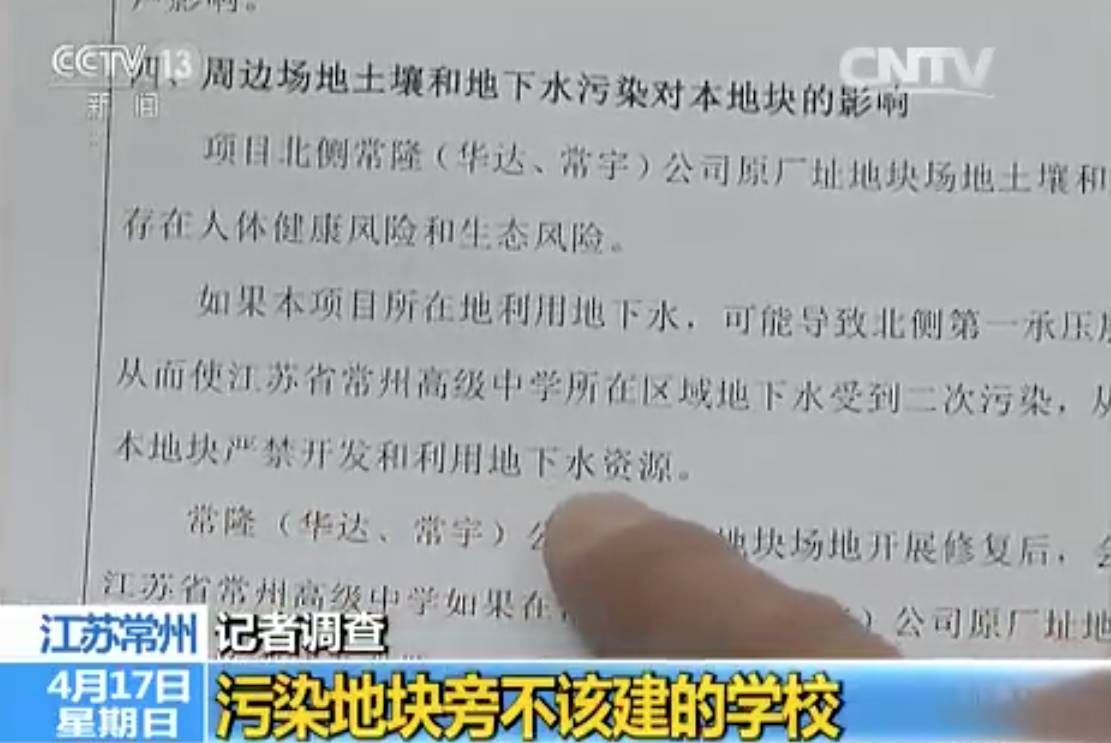 CCTV 13
新闻
CNTV
响。
四、周边场地土壤和地下水污染对本地块的影响
项目北侧常隆（华达、常宇）公司原厂址地块场地土壤和
存在人体健康风险和生态风险。
如果本项目所在地利用地下水，可能导致北侧第一承压
从而使江苏省常州高级中学所在区域地下水受到二次污染，从
本地块严禁开发和利用地下水资源。
常隆（华达、常宇）公 地块场地开展修复后，会
江苏省常州高级中学如果在 ）公司原厂址地
江苏常州 记者调查
4月17日
星期日
污染地块旁不该建的学校